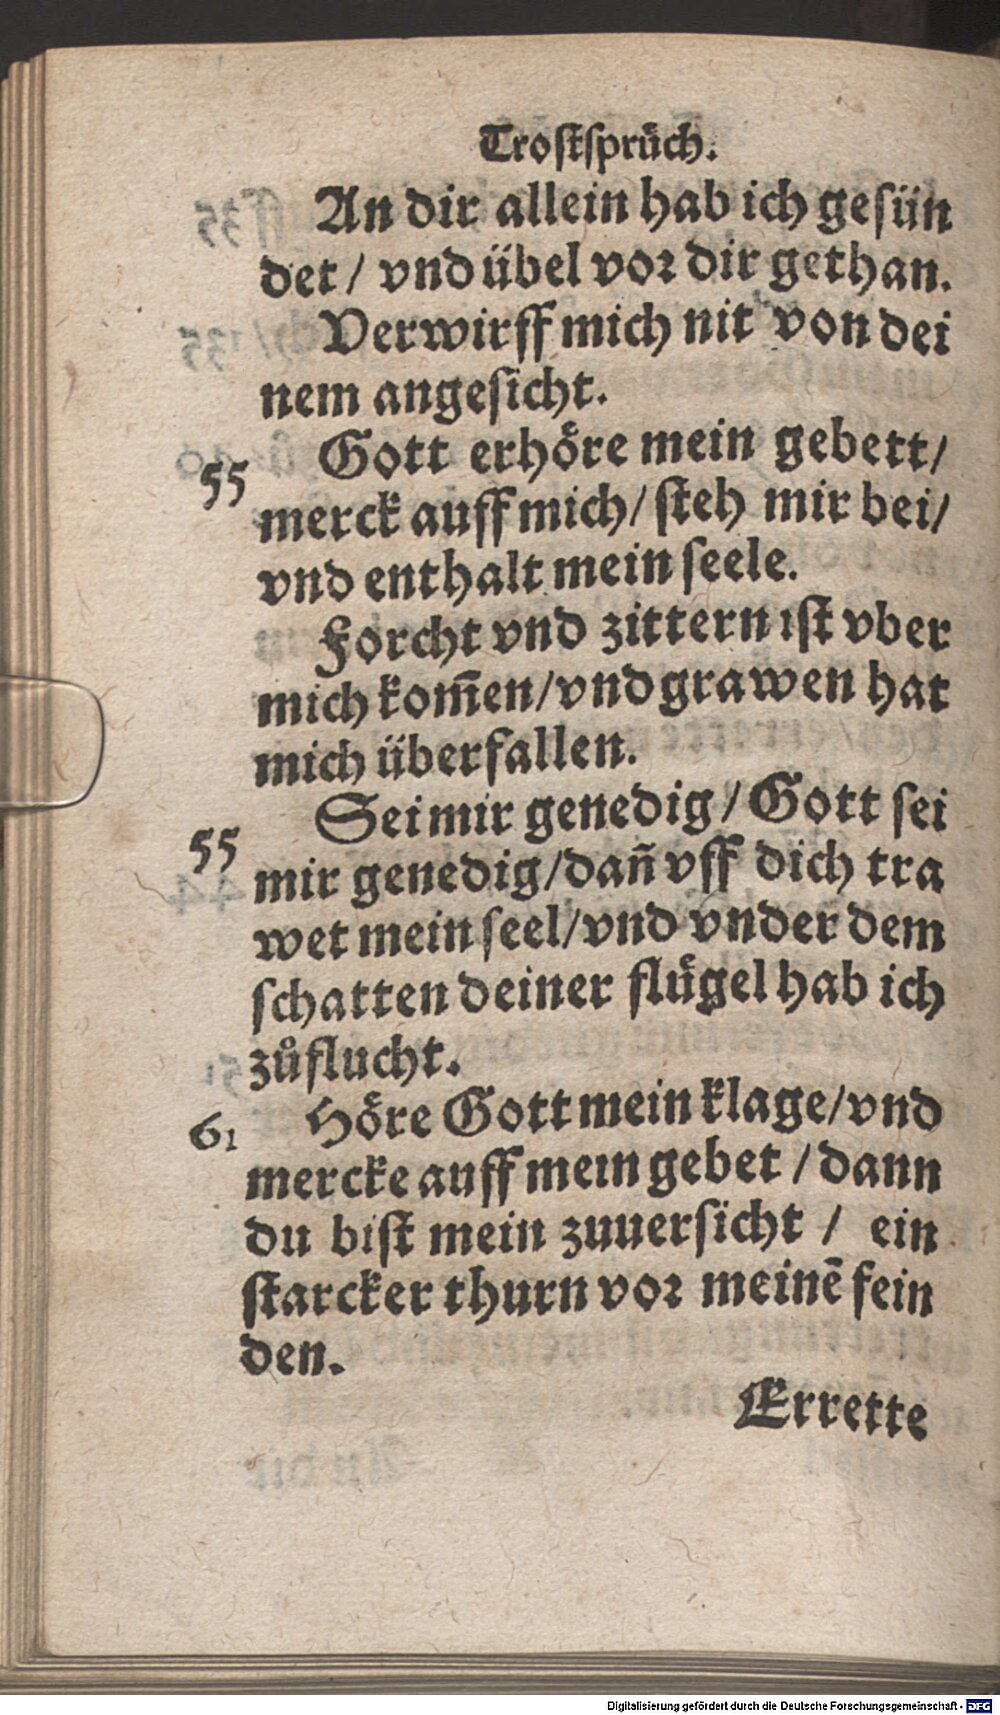 Trostsprüch.
An dir allein hab ich gesün
det / vnd übel vor dir gethan.
Verwirff mich nit von dei
nem angesicht.
55 Gott erhoͤre mein gebett/
merck auff mich/ steh mir bei/
vnd enthalt mein seele.
Forcht vnd zittern ist vber
mich kom̃en/vnd grawen hat
mich überfallen.
55 Sei mir genedig / Gott sei
mir genedig/dañ vff dich tra
wet mein seel/vnd vnder dem
schatten deiner fluͤgel hab ich
zůflucht.
61 Hoͤre Gott mein klage/vnd
mercke auff mein gebet / dann
du bist mein zuuersicht / ein
starcker thurn vor meinē fein
den.
Errette
Digitalisierung gefördert durch die Deutsche Forschungsgemeinschaft - DFG